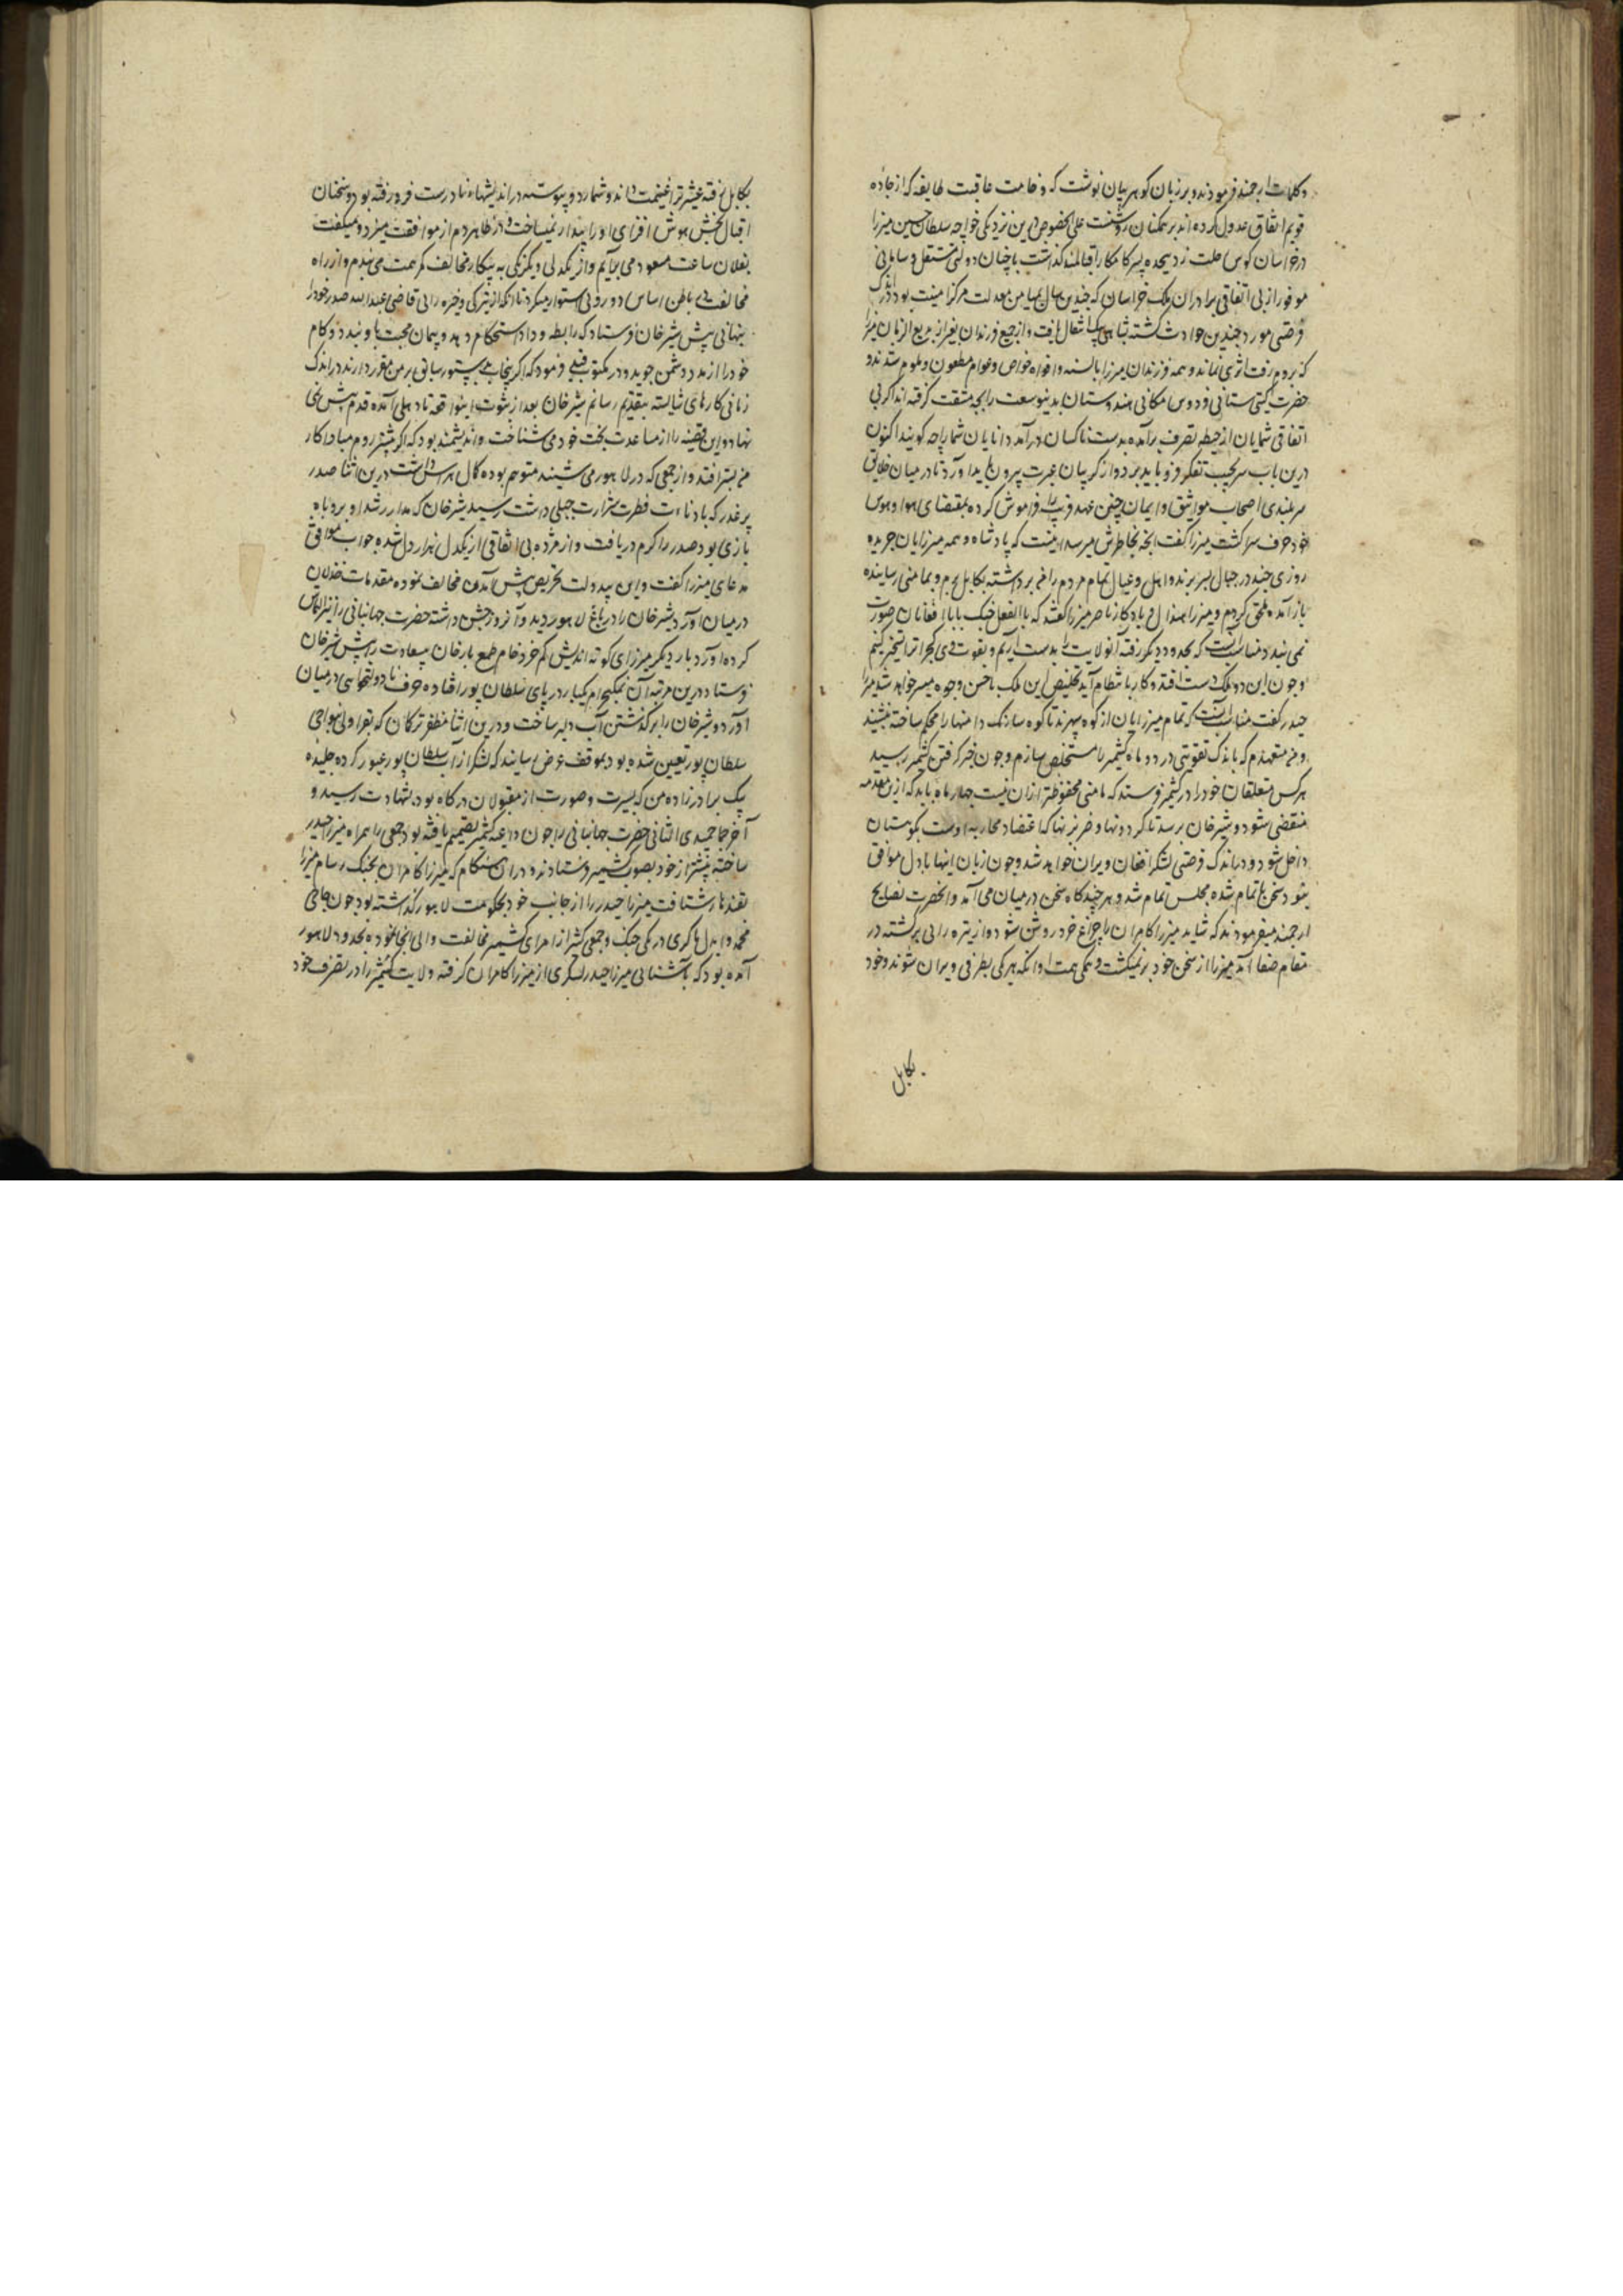 و کلمات ارجمند فرمودند و بر زبان گوهر بیان گذشت که وخامت عاقبت طایفه که از جاده
قویم اتفاق عدول کرده اند بر همکنان روشنست علی الخصوص درین نزدیکی خواجه سلطان حسین میرزا
در خراسان کوس رحلت زد هیجده پسر کامکار اقبالمند گذاشت با چنان دولتی مستقل و سامانی
موفور از بی اتفاقی برادران ملک خراسان که چندین سال بمیامن معدلت مرکز امنیت بود در اندک
فرصتی مورد چندین حوادث گشته بشاهی بیک انتقال یافت و از جمیع فرزندان بغیر از بدیع الزمان میرزا
که بروم رفت اثری نماند و همه فرزندان میرزا بالسنه و افواه خواص و عوام مطعون و ملوم شدند و
حضرت گیتی ستانی فردوس مکانی هندوستان بدین وسعت را بچه مشقت گرفته اند اگر بی
اتفاقی شمایان از حیطه تصرف برآمده بدست ناکسان درآمد دانایان شما را چه گویند اکنون
درین باب سر بجیب تفکر فرو باید برد و از گریبان عبرت بیرون باید آورد تا در میان خلایق
سربلندی اصحاب مواثیق و ایمان چنین عهد قریب را فراموش کرده بمقتضای هوا و هوس
خود حرف سرا گشت میرزا گفت آنچه بخاطرش میرسد اینست که پادشاه و همه میرزایان جریده
روزی چند در جبال بسر برند و اهل و عیال تمام مردم را من برداشته بکابل برم و بمأمنی رسانیده
باز آمده ملحق گردم و میرزا هندال و یادگار ناصر میرزا گفتند که بالفعل جنگ با افغانان صورت
نمی بندد مناسب آنست که بحدود دیگر رفته آن ولایت را بدست آریم و بقوت وی گجرات را تسخیر کنیم
و چون این دو ملک بدست افتد و کار بانتظام آید تخلیص این ملک باحسن وجوه میسر خواهد شد میرزا
حیدر گفت مناسب آنست که تمام میرزایان از کوه سهرند تا کوه سارنک دامنها را محکم ساخته بنشینند
و من متعهدم که باندک تقویتی در دو ماه کشمیر را مستخلص سازم و چون خبر گرفتن کشمیر رسید
هر کس متعلقان خود را در کشمیر فرستد که مأمنی محفوظتر از آن نیست چهار ماه باید که ازین مقدمه
منقضی شود و شیرخان برسد تا گردونها و ضربزنها که اعتضاد محاربه اوست بکوهستان
داخل شود و در اندک فرصتی لشکر افغان ویران خواهد شد و چون زبان اینها با دل موافق
نبود سخن ناتمام شده مجلس تمام شد و هر چندگاه سخن در میان می آمد و آنحضرت نصایح
ارجمند میفرمودند که شاید میرزا کامران را چراغ خرد روشن شود و از بیراه رانی برگشته در
مقام صفا آید میرزا از سخن خود برنمیگشت و همگی همت او آنکه هر یکی بطرفی ویران شوند و خود
بکابل
بکابل رفته عیش را غنیمت داند و شمارد و پیوسته در اندیشهاء نادرست فرو رفته بود و سخنان
اقبال بخش هوش افزای او را بیدار نمیساخت در ظاهر دم از موافقت میزد و میگفت
بفلان ساعت مسعود می برآیم و از یکدلی و یکرنگی به پیکار مخالف کمر همت می بندم و از راه
مخالفت در باطن اساس دورویی استوار میکرد تا آنکه از تیرگی و خیره رایی قاضی عبدالله صدر خود را
پنهانی پیش شیرخان فرستاد که رابطه وداد استحکام دهد و پیمان محبت با او بندد و کام
خود را از مدد دشمن جوید و در مکتوب قلمی فرمود که اگر پنجاب بدستور سابق بر من مقرر دارند در اندک
زمانی کارهای شایسته بتقدیم رسانم شیرخان بعد از ثبوت این واقعه تا دهلی آمده قدم پیش نمی
نهاد و این قضیه را از مساعدت بخت خود می شناخت و اندیشمند بود که اگر پیشتر روم مبادا کار
من بتر افتد و از جمعی که در لاهور می شنید متوهم بوده کمال هراس داشت درین اثنا صدر
پرغدر که با دنائت فطرت شرارت جبلی داشت رسید شیرخان که مدار رشد او بروباه
بازی بود صدر را گرم دریافت و از مژده بی اتفاقی از یکدل هزار دل شده جواب موافق
مدعای میرزا گفت و این بیدولت تحریص پیش آمدن مخالف نموده مقدمات خذلان
در میان آورد شیرخان را در باغ لاهور دید و آن روز جشن داشته حضرت جهانبانی را نیز التماس
کرده آورد بار دیگر میرزای کوته اندیش کم خرد خام طمع بار خان بیسعادت را پیش شیرخان
فرستاد درین مرتبه آن نمکحرام یکبار در پای سلطان پور افتاده حرف نادولتخواهی در میان
آورد و شیرخان را بر گذشتن آب دلیر ساخت و درین اثنا مظفر ترکمان که بقراولی نواحی
سلطان پور تعیین شده بود بموقف عرض رسانید که لشکر از آب سلطان پور عبور کرده جنیده
بیک برادرزاده من که بسیرت و صورت از مقبولان درگاه بود بشهادت رسید و
آخر جمادی الثانی حضرت جهانبانی را چون داعیه کشمیر تصمیم یافته بود جمعی را همراه میرزا حیدر
ساخته پیشتر از خود بصوب کشمیر فرستادند و در آن هنگام که میرزا کامران بجنگ سام میرزا
بقندهار شتافت میرزا حیدر را از جانب خود بحکومت لاهور گذاشته بود چون حاجی
محمد و ابدال ماکری در یکی جنگ و جمعی کثیر از امرای کشمیر مخالفت والی آنجا نموده بحدود لاهور
آمده بود که بآشنایی میرزا حیدر لشکری از میرزا کامران گرفته ولایت کشمیر را در تصرف خود